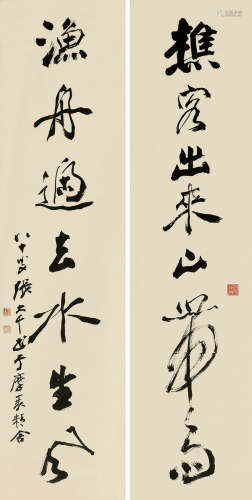 樵客出來山帶雨
漁舟過去水生風
八十叟張大千書于摩耶精舍